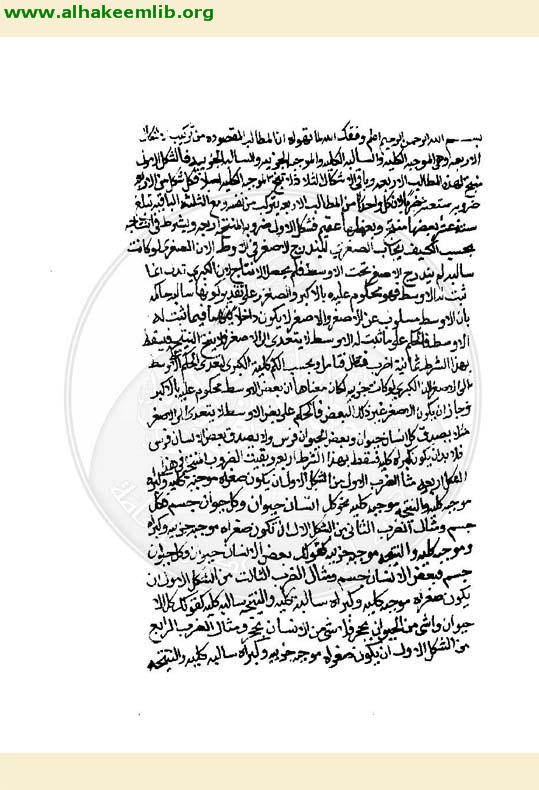 www.alhakeemlib.org
بسم الله الرحمن الرحيم اعلم وفقك الله ان المطالب المقصوده من تركيب
الاربعه وهي الموجبه الكليه والسالبه الكليه والموجبه الجزييه والسالبه الجزييه فالشكل الاول
ينتج لهذه المطالب الاربعه وباقي الاشكال الثلاثه لا تنتج الموجبه الكليه
ضروبه ستة عشر ضربا لان كل واحد من المطالب الاربعه يتركب من نفسه ومع الثلثه الباقيه تبلغ
ستة عشر بعضها منتج وبعضها عقيم فشكل الاول ضروبه المنتجه اربعه ويشترط في انتاجه
بحسب الكيف ايجاب الصغرى ليندرج الاصغر في الاوسط لان الصغرى لو كانت
سالبه لم يندرج الاصغر تحت الاوسط فلم يحصل الانتاج لان الكبرى تدل
ثبت له الاوسط فهو محكوم عليه بالاكبر والصغرى على تقدير كونها سالبه حاكمه
بان الاوسط مسلوب عن الاصغر والاصغر لا يكون داخلا فيما ثبت له
الاوسط فالحكم على ما ثبت له الاوسط لا يتعدى الى الاصغر فلا ينتج فيسقط
بهذا الشرط ثمانية اضرب فتامل وبحسب الكم كليه الكبرى ليتعدى الحكم الاوسط
الى الاصغر لان الكبرى لو كانت جزييه لكان معناها ان بعض الاوسط محكوم عليه بالاكبر
وجاز ان يكون الاصغر غير ذلك البعض فالحكم على بعض الاوسط لا يتعدى الى الاصغر
مثلا يصدق كل انسان حيوان وبعض الحيوان فرس ولا يصدق بعض الانسان فرس
فلا بد ان يكون كبراه كليه فتسقط بهذا الشرط اربعه وبقيت الضروب المنتجه في هذا
الشكل اربعه مثال الضرب الاول من الشكل الاول ان يكون صغراه موجبه كليه وكبراه
موجبه كليه والنتيجه موجبه كليه نحو كل انسان حيوان وكل حيوان جسم فكل
جسم ومثال الضرب الثاني من الشكل الاول ان تكون صغراه موجبه جزييه وكبراه
موجبه كليه والنتيجه موجبه جزييه كقولك بعض الانسان حيوان وكل حيوان
جسم فبعض الانسان جسم ومثال الضرب الثالث من الشكل الاول ان
يكون صغراه موجبه كليه وكبراه سالبه كليه والنتيجه سالبه كليه كقولك كل انسان
حيوان ولا شي من الحيوان بحجر فلا شي من الانسان بحجر ومثال الضرب الرابع
من الشكل الاول ان يكون صغراه موجبه جزييه وكبراه سالبه كليه والنتيجه